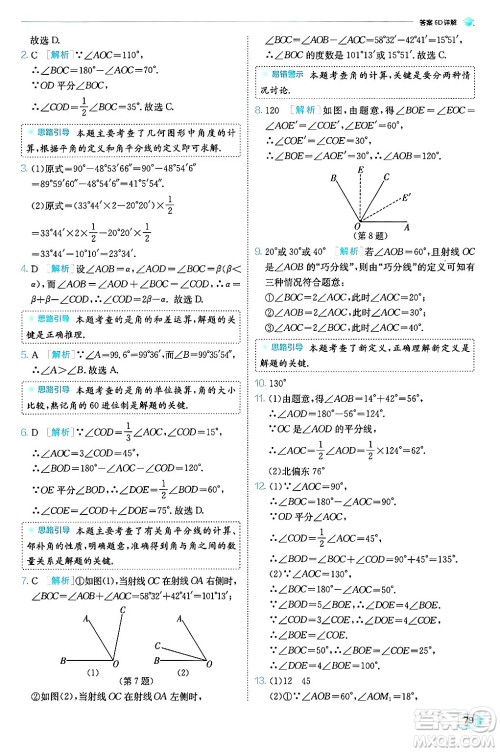 答案6D详解
故选D.
2. C [解析]∵∠AOC=110°,
∴∠BOC=180°-∠AOC=70°.
∵OD平分∠BOC,
∴∠COD=1/2∠BOC=35°.故选C.
思路引导 本题主要考查了几何图形中角度的计算,根据平角的定义和角平分线的定义即可求解.
3. (1)原式=90°-48°53′66″=89°59′60″-48°54′6″=41°5′54″.
(2)原式=33°44′×1/2-20°20′×1/2=(33°44′-20°20′)×1/2=13°24′×1/2=6°42′.
4. D [解析]设∠AOB=α,∠BOC=β(β<α),∴∠AOC=∠AOB-∠BOC=α-β.∴α+β-β-2β=α-2β.故选D.
思路引导 本题考查的是角的和差运算,解题的关键是正确推理.
5. A [解析]∵∠A=99.6°=99°36′,而∠B=99°35′,
∴∠A>∠B.故选A.
思路引导 本题考查的是角的单位换算,角的大小比较,熟记角的60进位制是解题的关键.
6. D [解析]∵∠COD=1/3∠AOC,∠COD=15°,
∴∠AOC=3∠COD=45°.
∴∠BOC=180°-∠AOC=135°.
∴∠BOD=∠BOC-∠COD=120°.
∵OE平分∠BOD,∴∠DOE=1/2∠BOD=60°.
∴∠COE=∠COD+∠DOE=75°.故选D.
思路引导 本题主要考查了有关角平分线的计算、邻补角的性质,明确题意,准确得到角与角之间的数量关系是解题的关键.
7. C [解析]①如图(1),当射线OC在射线OA右侧时,∠BOC=∠AOB+∠AOC=58°32′+42°41′=101°13′.
A C B O (1)
C A B O (2)
(第7题)
②如图(2),当射线OC在射线OA左侧时,
∠BOC=∠AOB-∠AOC=58°32′-42°41′=15°51′.
∴∠BOC的度数是101°13′或15°51′.故选C.
易错警示 本题考查角的计算,关键是要分两种情况讨论.
8. 120 [解析]如图,由题意,得∠BOE=∠BOE′,∠AOE′=∠COE′,
∴∠BOE=∠BOC+∠COE′=∠BOC+∠AOE′.
∴∠AOB+∠COE=∠AOB+∠BOC+∠BOE=∠AOB+∠BOC+∠BOC+∠AOE′=2∠BOC=120°.
C B E E′ O A
(第8题)
9. 20°或30°或40° [解析]若∠AOB=60°,且射线OC是∠AOB的“巧分线”,则由“巧分线”的定义可知有三种情况符合题意:
①∠BOC=2∠AOC,此时∠AOC=20°;
②∠AOB=2∠AOC,此时∠AOC=30°;
③∠AOC=2∠BOC,此时∠AOC=40°.
思路引导 本题考查了新定义,正确理解新定义是解题的关键.
10. 130°
11. (1)由题意,得∠AOB=14°+42°+6°=62°,
∴∠AOD=2∠AOB=124°.
∵OC是∠AOD的平分线,
∴∠AOC=1/2∠AOD=1/2×124°=62°.
(2)北偏东76°
12. (1)∵∠AOC=90°,
∴∠BOC=∠AOC=90°.
∵∠COD=1/2∠COB,
∴∠COD=1/2×90°=45°.
∴∠AOD=∠AOC+∠COD=90°+45°=135°.
(2)∵∠AOC=90°,∠DOE=90°,
∴∠AOC=∠DOE.
∴∠AOE+∠EOC=∠COD+∠EOC.
∴∠AOE=∠COD.
13. (1)12 45
(2)∵∠AOB=180°,∠BOC=30°,
∴∠AOC=150°.
79